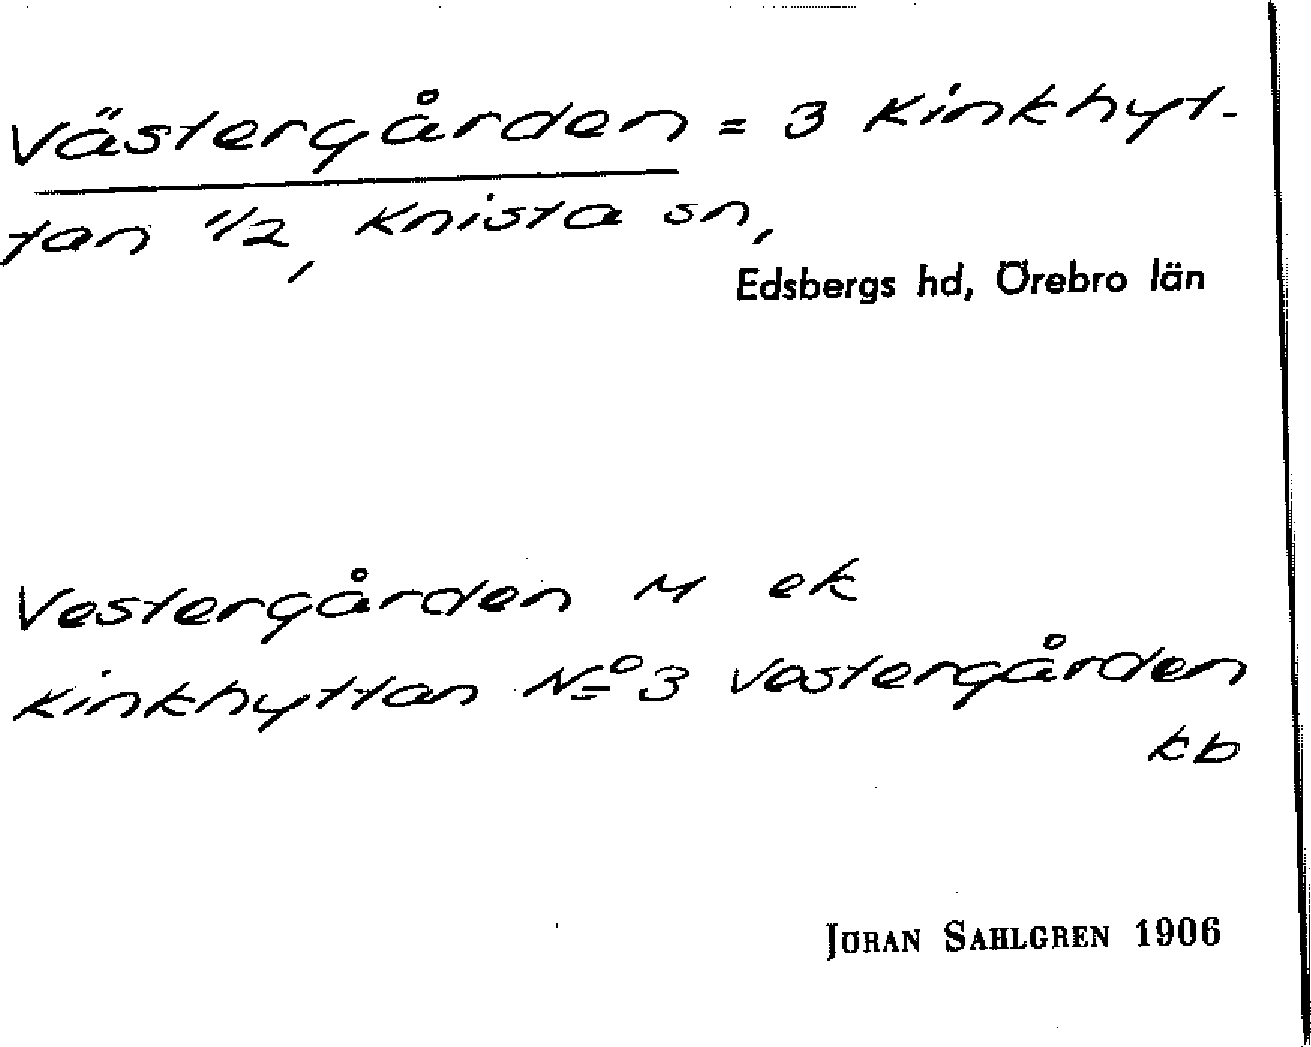 Västergården = 3 Kinkhyt-
tan 1/2, Knista sn,
Edsbergs hd, Örebro län
Vestergården M ek
Kinkhyttan No 3 Vestergården
kb
JÖRAN SAHLGREN 1906